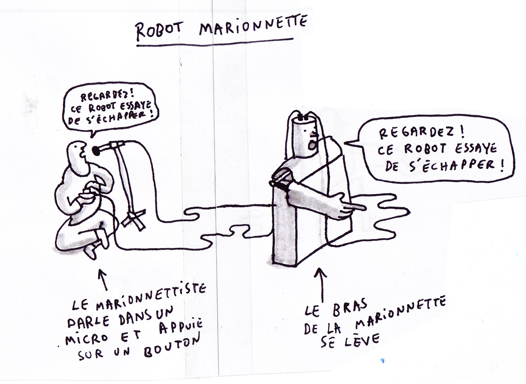 ROBOT MARIONNETTE
REGARDEZ!
CE ROBOT ESSAYE
DE S'ÉCHAPPER!
REGARDEZ!
CE ROBOT ESSAYE
DE S'ÉCHAPPER!
LE MARIONNETTISTE
PARLE DANS UN
MICRO ET APPUIE
SUR UN BOUTON
LE BRAS
DE LA MARIONNETTE
SE LÈVE